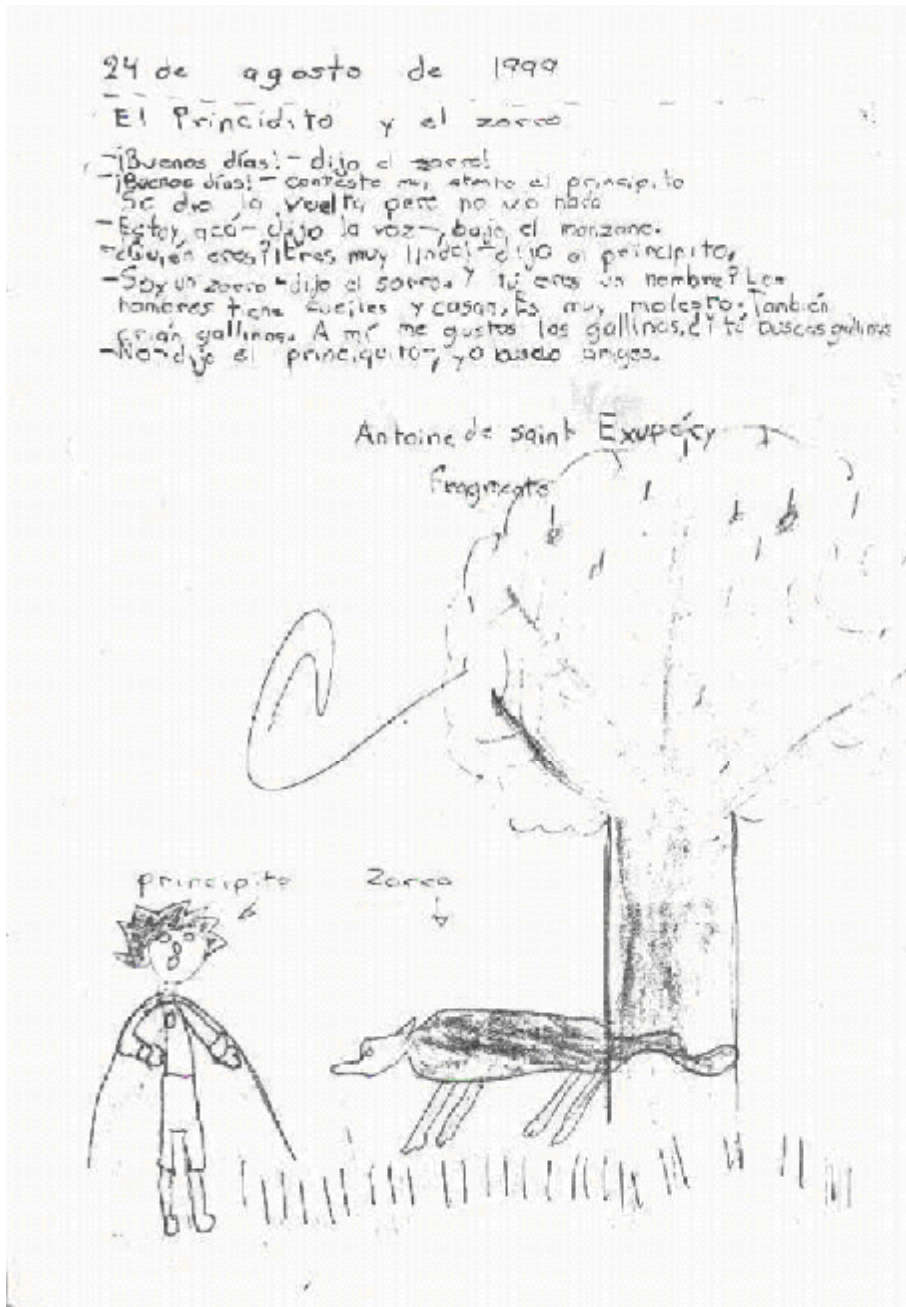 24 de agosto de 1999
El Princidito y el zorro
-¡Buenos días!- dijo el zorro!
-¡Buenos días!- contesto muy atento el principito
Se dio la vuelta pero no vio nada
-Estoy acá- dijo la voz-, bajo el manzano.
-¿Quién eres? ¡Eres muy lindo!- dijo el principito.
-Soy un zorro- dijo el sorro. Y tú eres un hombre? Los
hombres tiene fuciles y casan. Es muy molesto. También
crian gallinas. A mí me gustas las gallinas. ¿i tú buscas gallinas
-No- dijo el princiquito-, yo busco amigos.
Antoine de saint Exupéry
Fragmento
principito Zorro